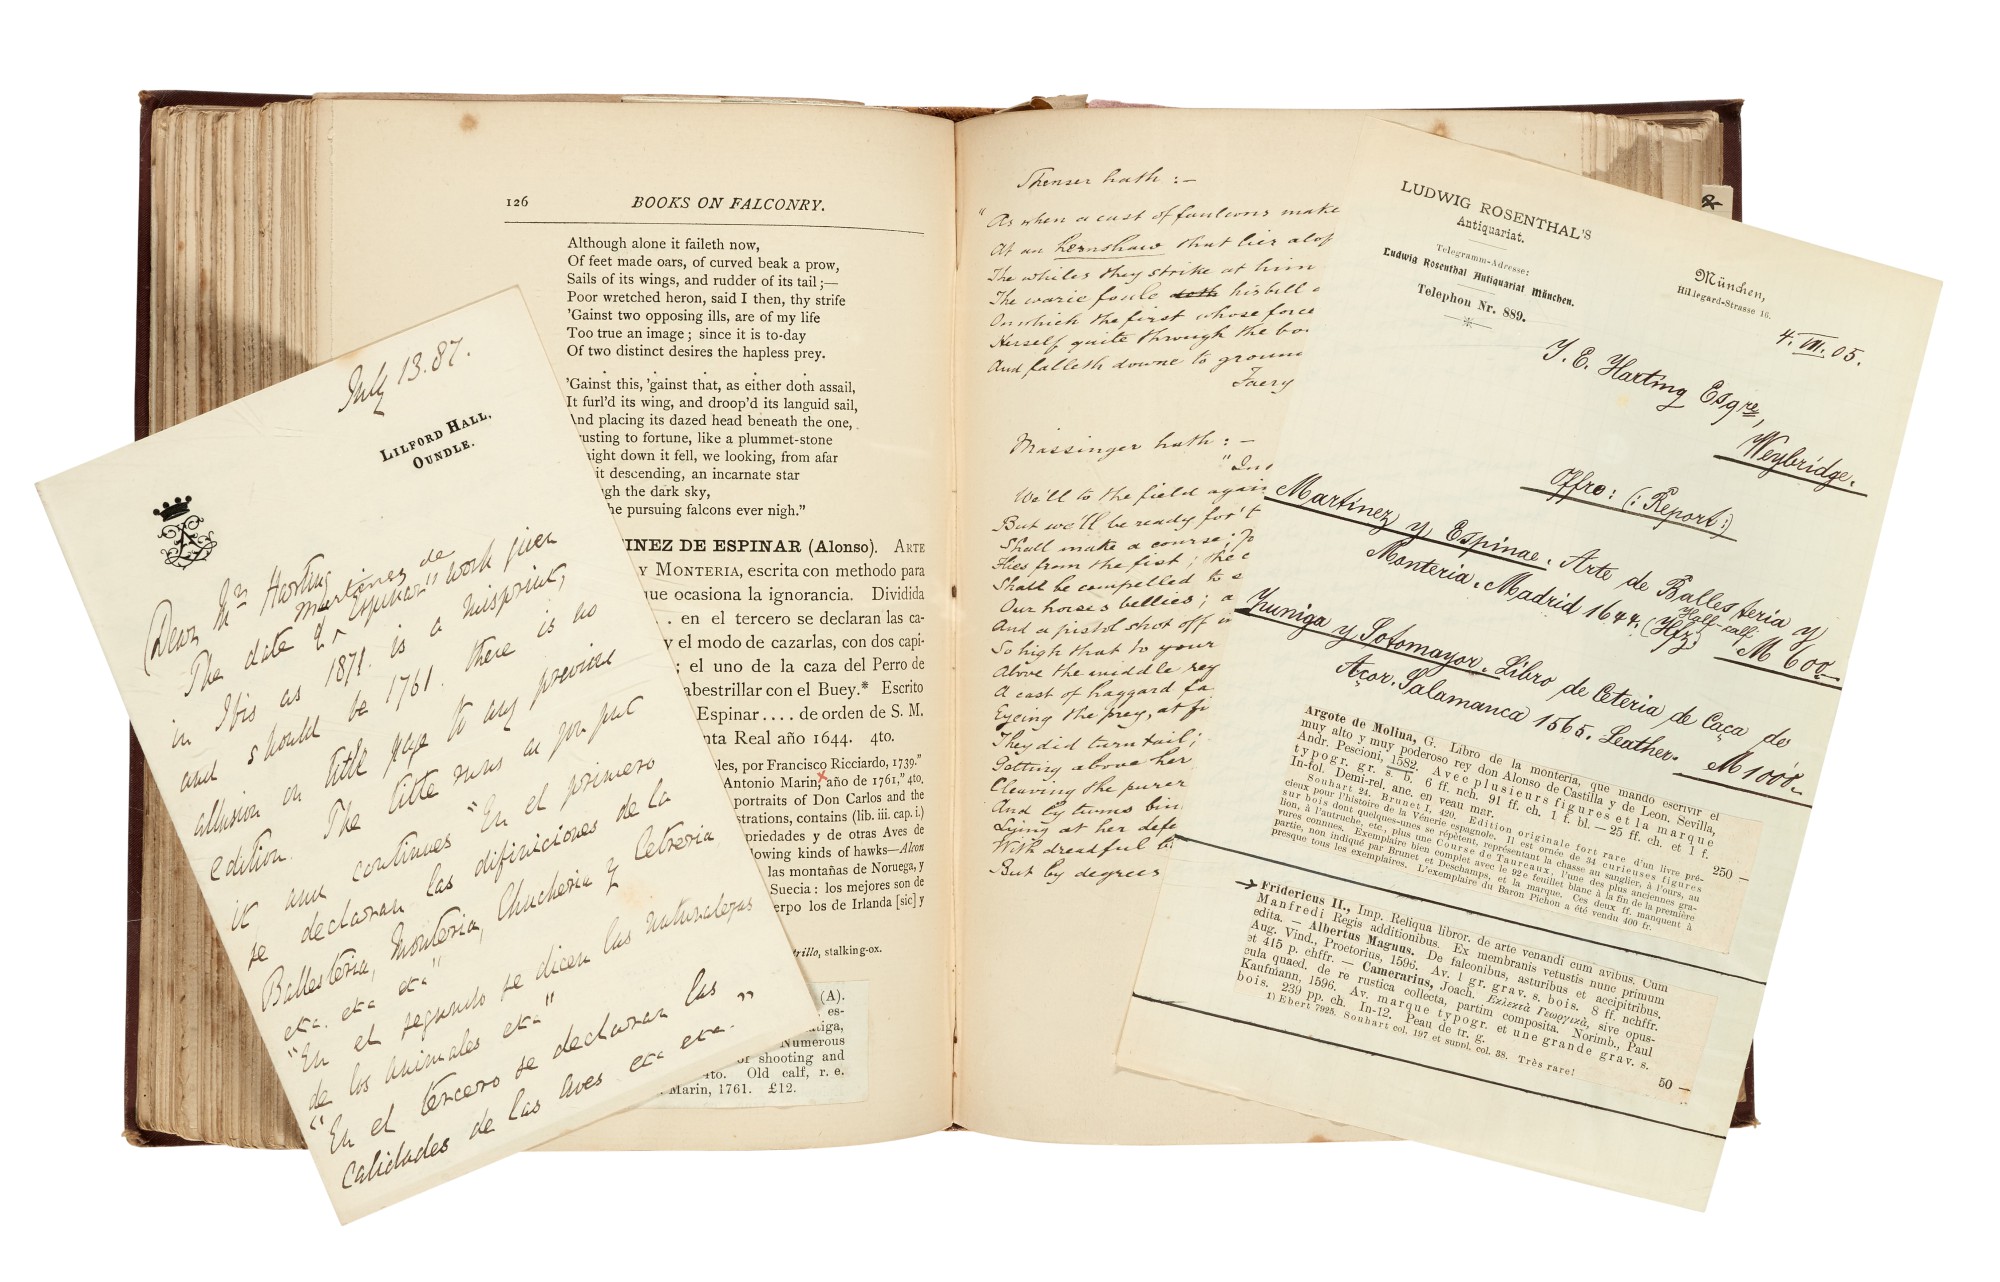 126
BOOKS ON FALCONRY.
Although alone it faileth now,
Of feet made oars, of curved beak a prow,
Sails of its wings, and rudder of its tail;—
Poor wretched heron, said I then, thy strife
'Gainst two opposing ills, are of my life
Too true an image; since it is to-day
Of two distinct desires the hapless prey.
'Gainst this, 'gainst that, as either doth assail,
It furl'd its wing, and droop'd its languid sail,
And placing its dazed head beneath the one,
rusting to fortune, like a plummet-stone
aight down it fell, we looking, from afar
it descending, an incarnate star
ugh the dark sky,
he pursuing falcons ever nigh."
INEZ DE ESPINAR (Alonso). ARTE
Y MONTERIA, escrita con methodo para
que ocasiona la ignorancia. Dividida
.. en el tercero se declaran las ca-
y el modo de cazarlas, con dos capi-
; el uno de la caza del Perro de
abestrillar con el Buey.* Escrito
Espinar .... de orden de S. M.
nta Real año 1644. 4to.
les, por Francisco Ricciardo, 1739."
Antonio Marin, año de 1761," 4to,
portraits of Don Carlos and the
strations, contains (lib. iii. cap. i.)
priedades y de otras Aves de
lowing kinds of hawks—Alcon
las montañas de Noruega, y
Suecia: los mejores son de
erpo los de Irlanda [sic] y
trillo, stalking-ox.
(A).
es-
tiga,
Numerous
of shooting and
to. Old calf, r. e.
Marin, 1761. £12.
July 13. 87.
LILFORD HALL,
OUNDLE.
Dear Mr Harting
The date of Martinez de Espinar's work given
in Ibis as 1871. is a misprint,
and should be 1761. there is no
allusion on title page to any previous
edition. The title runs as you put
it and continues "En el primero
se declaran las difiniciones de la
Ballesteria, Monteria, Chucheria y Cetreria
etca. etca etca"
"En el segundo se dicen las naturalezas
de los animales etca"
"En el tercero se declaran las
calidades de las aves etca etca. "
Spenser hath :—
"As when a cast of faulcons make
At an hernshaw that lies alof
The whiles they strike at him
The warie foule doth his bill
On which the first whose force
Herself quite through the bo
And falleth downe to ground
Faery
Massinger hath : —
We'll to the field again
But we'll be ready for't
Shall make a course;
Flies from the fist; the
Shall be compelled to s
Our horses bellies; a
And a pistol shot off in
So high that to your
Above the middle reg
A cast of haggard fa
Eyeing the prey, at fi
They did turn tail;
Getting above her
Cleaving the purer
And by turns bin
Lying at her defe
With dreadful
But by degrees
LUDWIG ROSENTHAL'S
Antiquariat.
Telegramm-Adresse:
Ludwig Rosenthal Antiquariat München.
Telephon Nr. 889.
München,
Hildegard-Strasse 16.
4. VII. 05.
J. E. Harting Esqre,
Weybridge.
Offro: (: Report:)
Martinez y Espinae. Arte de Ballesteria y
Monteria. Madrid 1644. (Hfz) Half-calf M 600.
Zuniga y Sotomayor. Libro de Ceteria de Caça de
Açor. Salamanca 1565. Leather. M 1000.
Argote de Molina, G. Libro de la monteria, que mando escrivir el
muy alto y muy poderoso rey don Alonso de Castilla y de Leon. Sevilla,
Andr. Pescioni, 1582. Avec plusieurs figures et la marque
typogr. gr. s. b. 6 ff. nch. 91 ff. ch. 1 f. bl. — 25 ff. ch. et 1 f.
In-fol. Demi-rel. anc. en veau mar. 250 —
Souhart 24. Brunet I, 420. Edition originale fort rare d'un livre pré-
cieux pour l'histoire de la Vénerie espagnole. Il est ornée de 34 curieuses figures
sur bois dont quelques-unes se répètent, représentant la chasse au sanglier, à l'ours, au
lion, à l'autruche, etc., plus une Course de Taureaux, l'une des plus anciennes gra-
vures connues. Exemplaire bien complet avec le 92e feuillet blanc à la fin de la première
partie, non indiqué par Brunet et Deschamps, et la marque. Ces deux ff. manquent à
presque tous les exemplaires. L'exemplaire du Baron Pichon a été vendu 400 fr.
Fridericus II., Imp. Reliqua libror. de arte venandi cum avibus. Cum
Manfredi Regis additionibus. Ex membranis vetustis nunc primum
edita. — Albertus Magnus. De falconibus, asturibus et accipitribus.
Aug. Vind., Proetorius, 1596. Av. 1 gr. grav. s. bois. 8 ff. nchffr.
et 415 p. chffr. — Camerarius, Joach. Εκλεκτὰ Γεωργικὰ, sive opus-
cula quaed. de re rustica collecta, partim composita. Norimb., Paul
Kaufmann, 1596. Av. marque typogr. et une grande grav. s.
bois. 239 pp. ch. In-12. Peau de tr. g. 50 —
1) Ebert 7925. Souhart col. 197 et suppl. col. 38. Très rare!